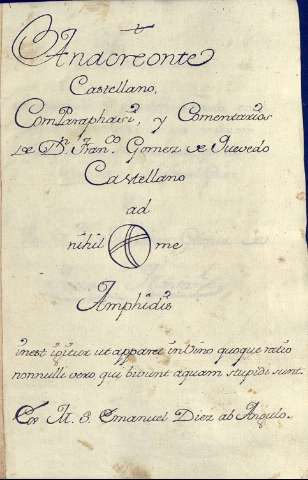 Anacreonte
Castellano,
Con Paraphasis, y Comentarios
De Dn. Franco. Gomez de Quevedo
Castellano
ad
nihil me
Amphidis
inest igitur ut apparet in Vino quoque ratio
nonnulli vero qui bivunt aquam stupidi sunt.
Emanuel Diez ab Angulo.